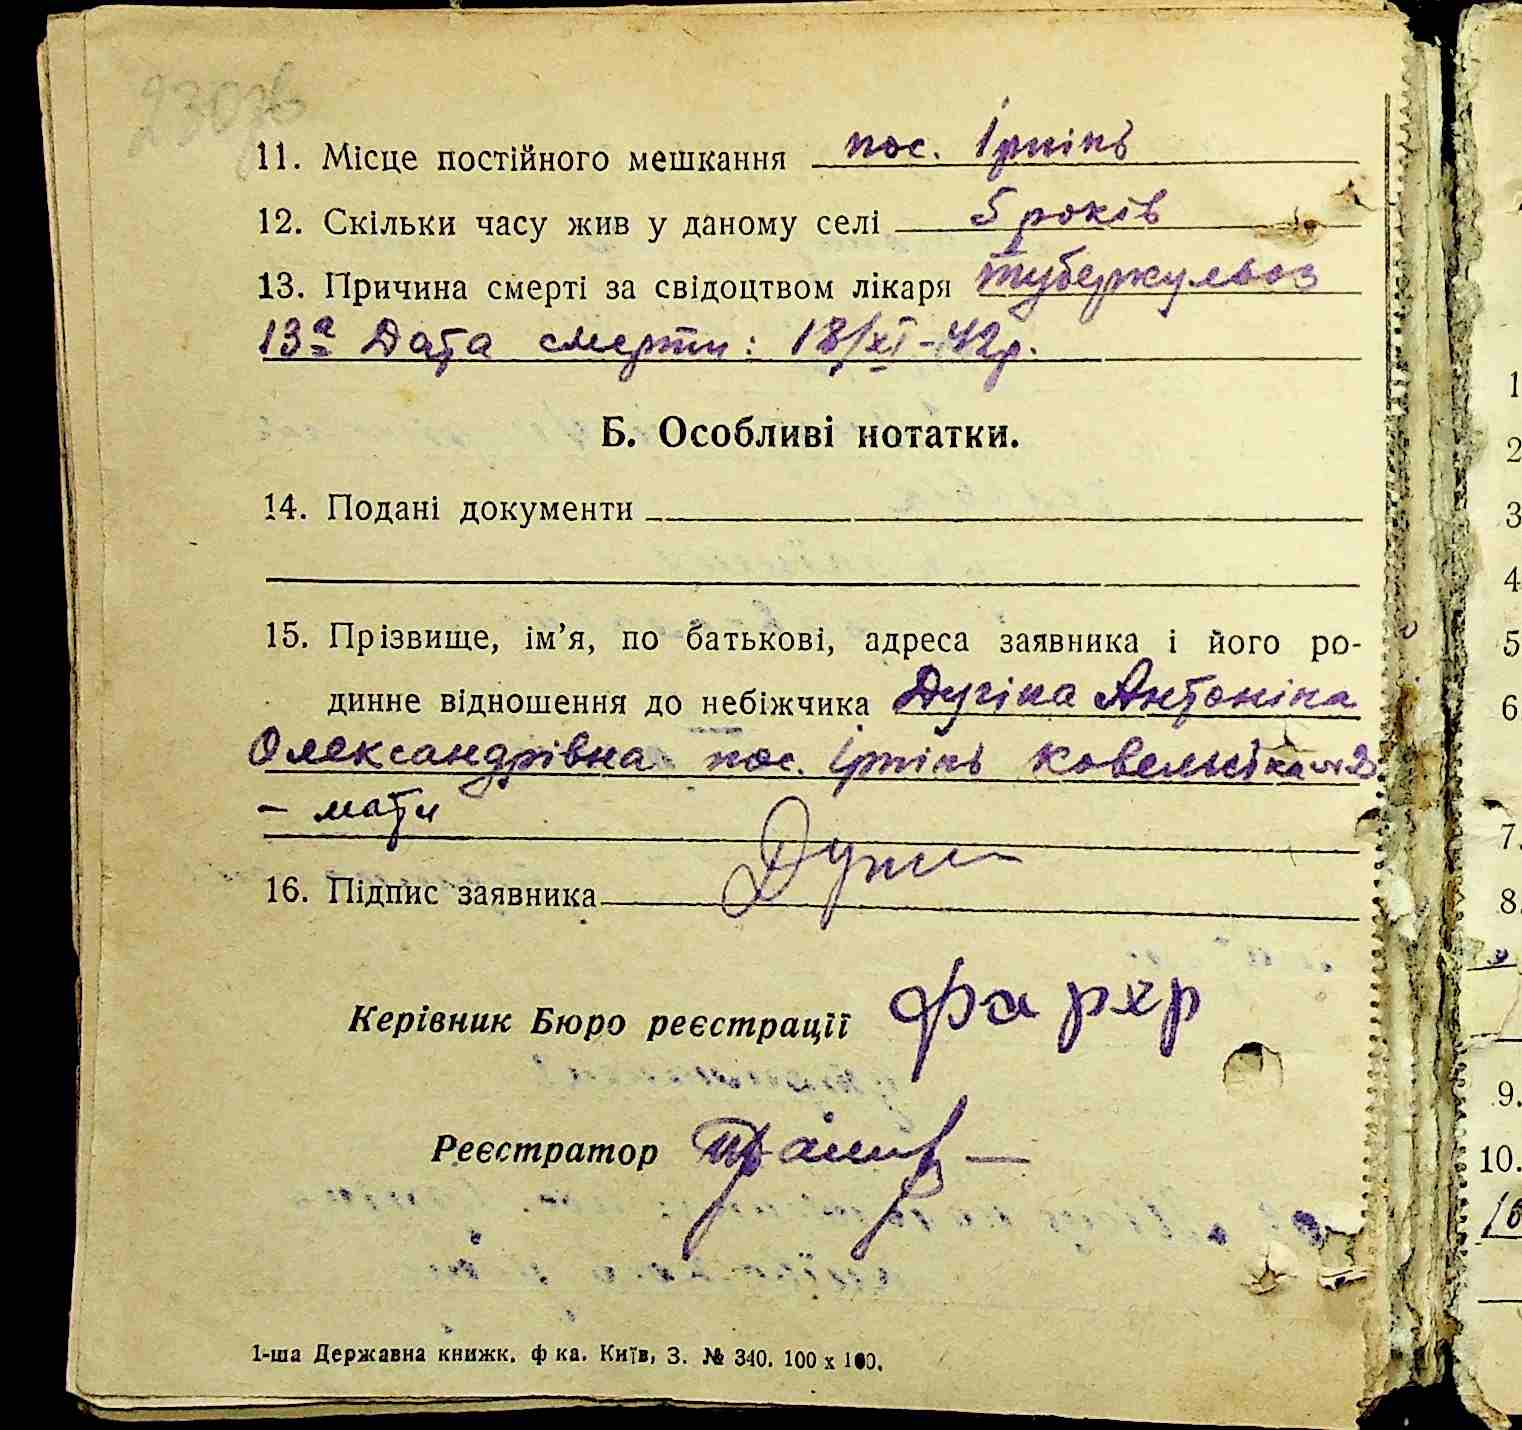 230зв
11. Місце постійного мешкання пос. Ірпінь
12. Скільки часу жив у даному селі 5 років
13. Причина смерті за свідоцтвом лікаря туберкульоз
13а Дата смерти: 18/XI-42р.
Б. Особливі нотатки.
14. Подані документи
15. Прізвище, ім’я, по батькові, адреса заявника і його ро-
динне відношення до небіжчика Дугіна Антоніна
Олександрівна пос. Ірпінь Ковельська
– мати
16. Підпис заявника
Керівник Бюро реєстрації
Реєстратор
1-ша Державна книжк. ф ка. Київ, З. № 340. 100 х 100.
1
2
3
4
5
6
7.
8.
9.
10.